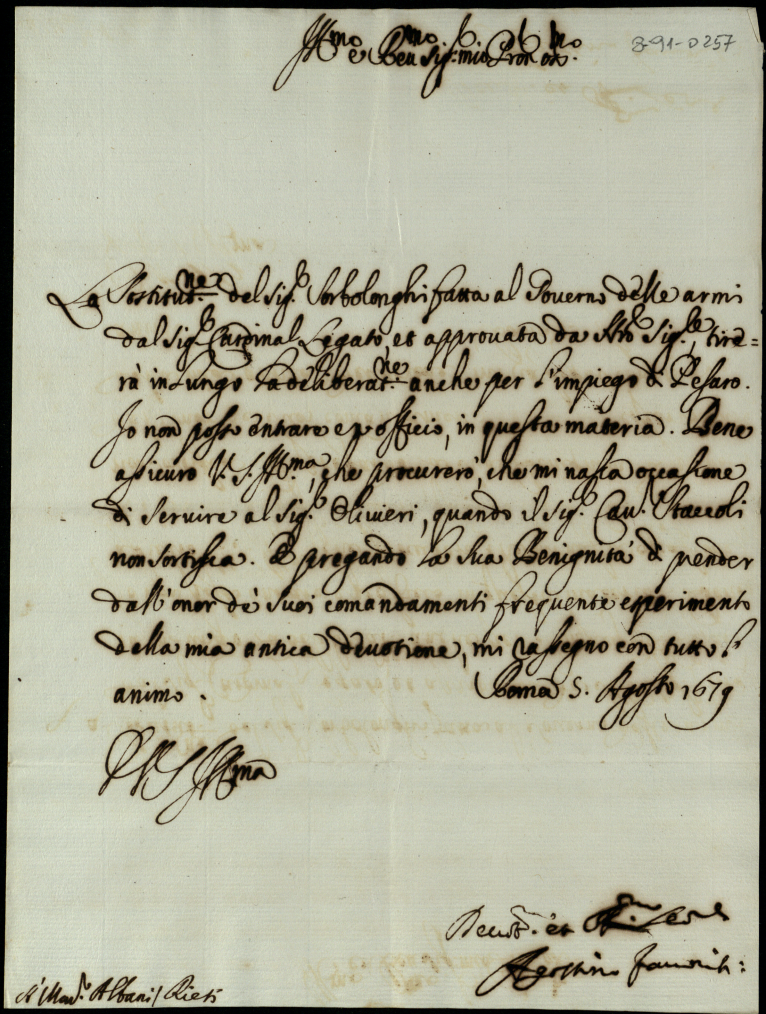 Ill.mo e Rev.mo Sig.r mio P.ron Oss.mo
3-91-0257
La Sostitut.ne del Sig.r Sorbolonghi fatta al Governo delle armi
dal Sig.r Cardinal Legato, et approvata da N.ro Sig.re, tire=
rà in lungo la deliberat.ne anche per l'impiego di Pesaro.
Io non posso entrare ex officio, in questa materia. Bene
assicuro V. S. Ill.ma, che procurerò, che mi nasca occasione
di servire al Sig.r Olivieri, quando il Sig.r Cav.r Staccoli
non sortisca. E pregando la sua Benignità di prender
dall'onor de suoi comandamenti frequente esperimento
della mia antica devotione, mi rassegno con tutto l'
animo. Roma 5. Agosto 1679
D V S Ill.ma
Devot. et
Agostino Favoriti
A Mons.r Albani / Rieti